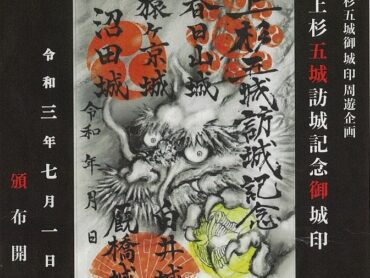 杉五城御城印周遊企画
上杉五城訪城記念御城印
上杉五城訪城記念
春日山城
猿ヶ京城
沼田城
白井城
厩橋城
令和 年 月 日
令和三年七月一日
頒布開